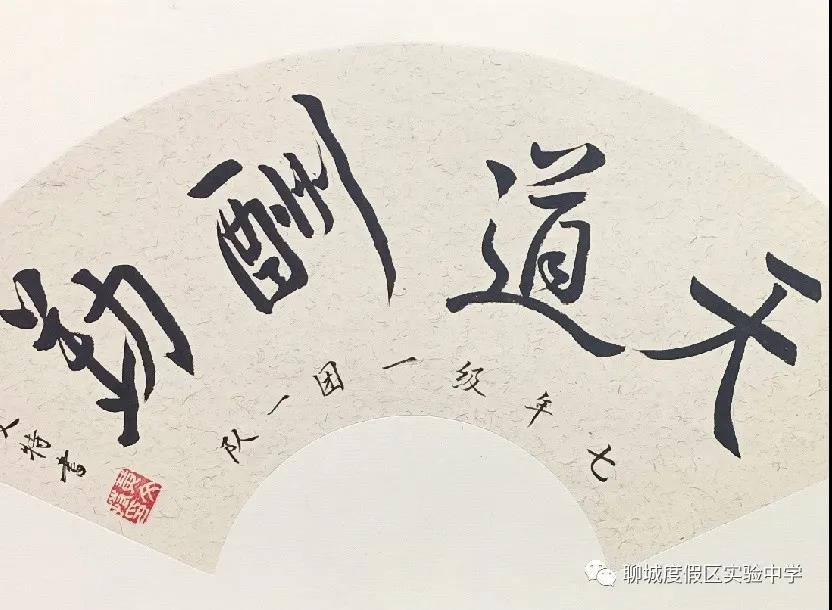 天道酬勤
七年级一团一队
特书
聊城度假区实验中学